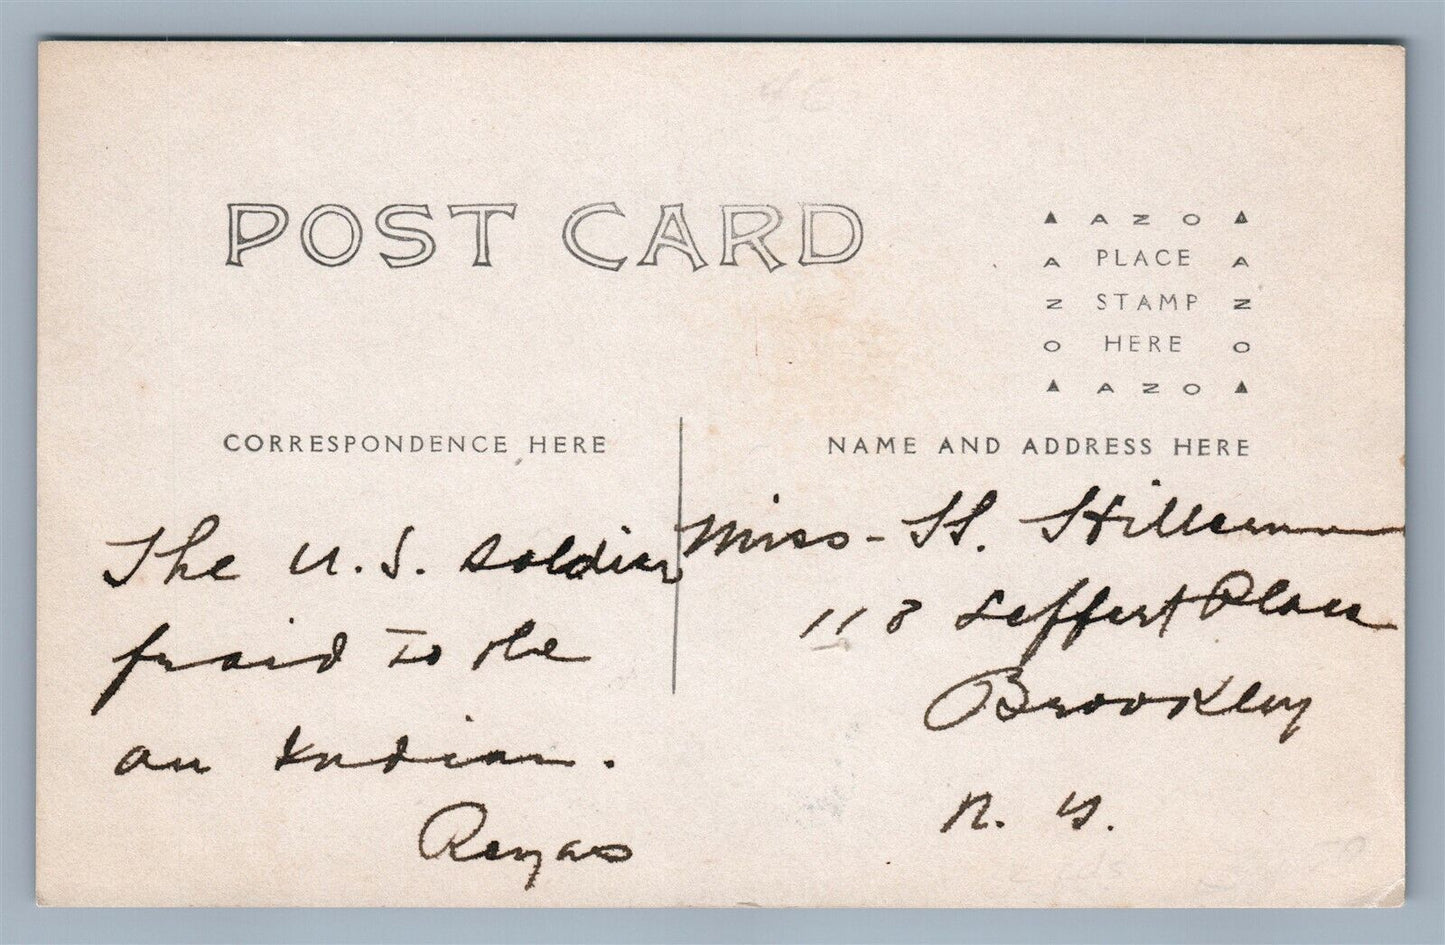 POST CARD
▲ AZO ▲
A PLACE A
Z STAMP Z
O HERE O
▲ AZO ▲
CORRESPONDENCE HERE
NAME AND ADDRESS HERE
The U.S. soldier
fraid to the
an Indian.
Reyas
Miss - H.
118 Leffert Place
Brookley
N. Y.